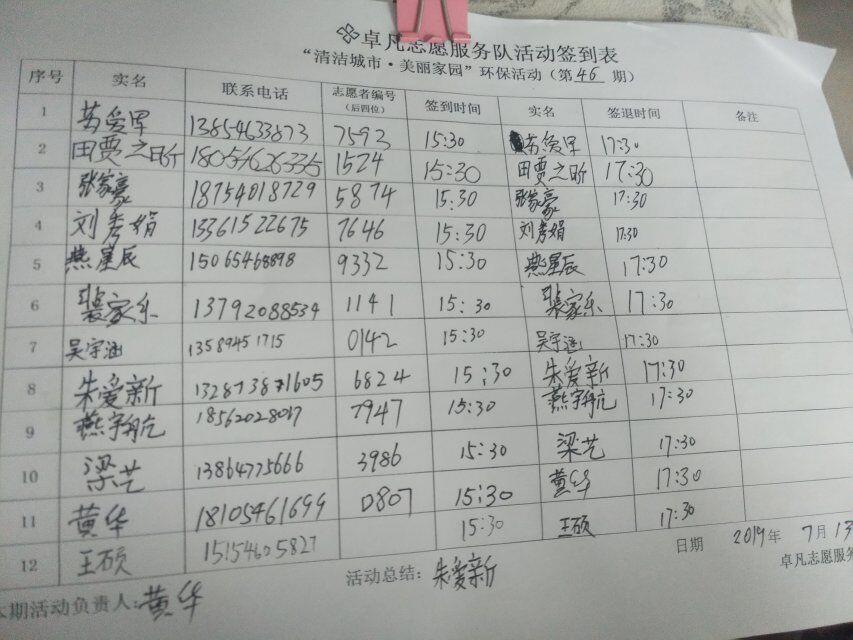 卓凡志愿服务队活动签到表
“清洁城市·美丽家园”环保活动（第46期）
序号 实名 联系电话 志愿者编号（后四位） 签到时间 实名 签退时间 备注
1 苏爱军 13854633873 7593 15:30 苏爱军 17:30
2 田贾之昕 18054626335 1524 15:30 田贾之昕 17:30
3 张家豪 18754018729 5874 15:30 张家豪 17:30
4 刘秀娟 13361522675 7646 15:30 刘秀娟 17:30
5 燕星辰 15065468898 9332 15:30 燕星辰 17:30
6 裴家乐 13792088534 1141 15:30 裴家乐 17:30
7 吴宇涵 13589451715 0142 15:30 吴宇涵 17:30
8 朱爱新 132873871605 6824 15:30 朱爱新 17:30
9 燕宇航 18562028017 7947 15:30 燕宇航 17:30
10 梁艺 13864775666 3986 15:30 梁艺 17:30
11 黄华 18105461699 0807 15:30 黄华 17:30
12 王硕 15154605827 15:30 王硕 17:30
日期 2019年7月13
本期活动负责人:黄华 活动总结:朱爱新 卓凡志愿服务